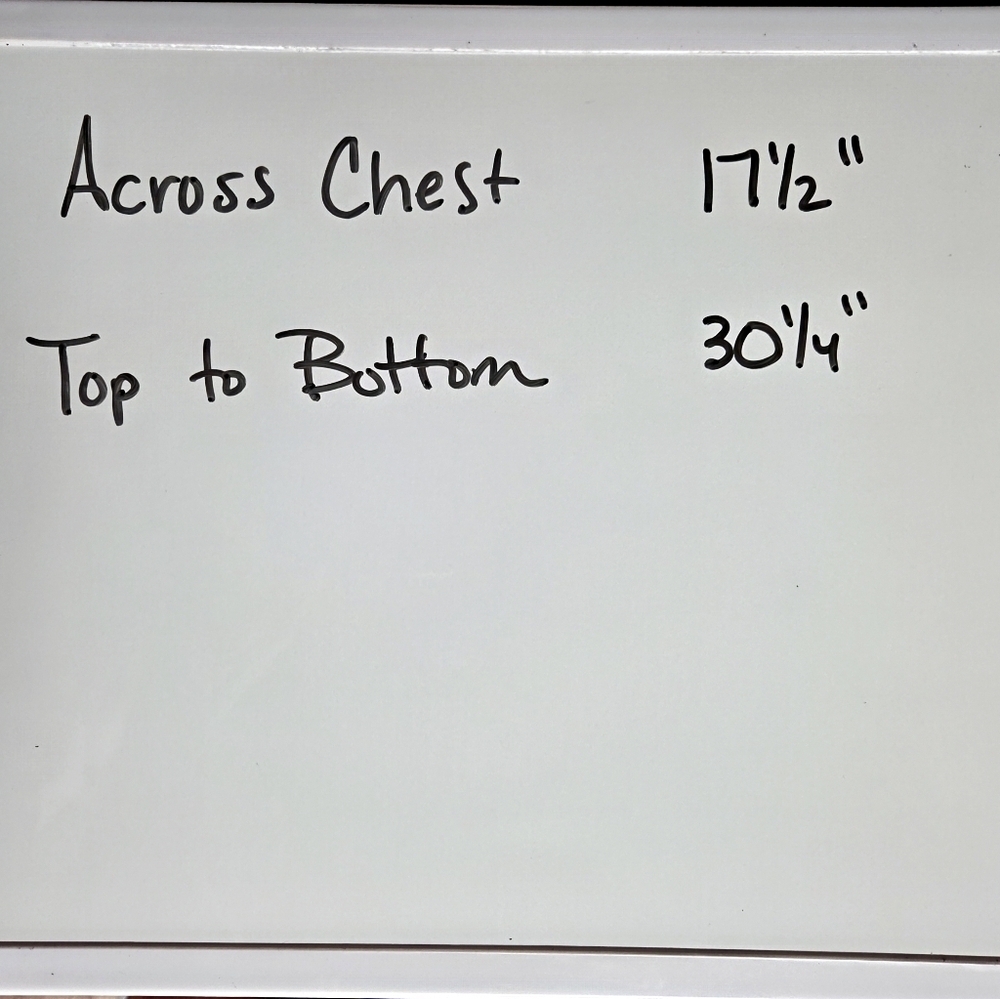 Across Chest 17 1/2"
Top to Bottom 30 1/4"